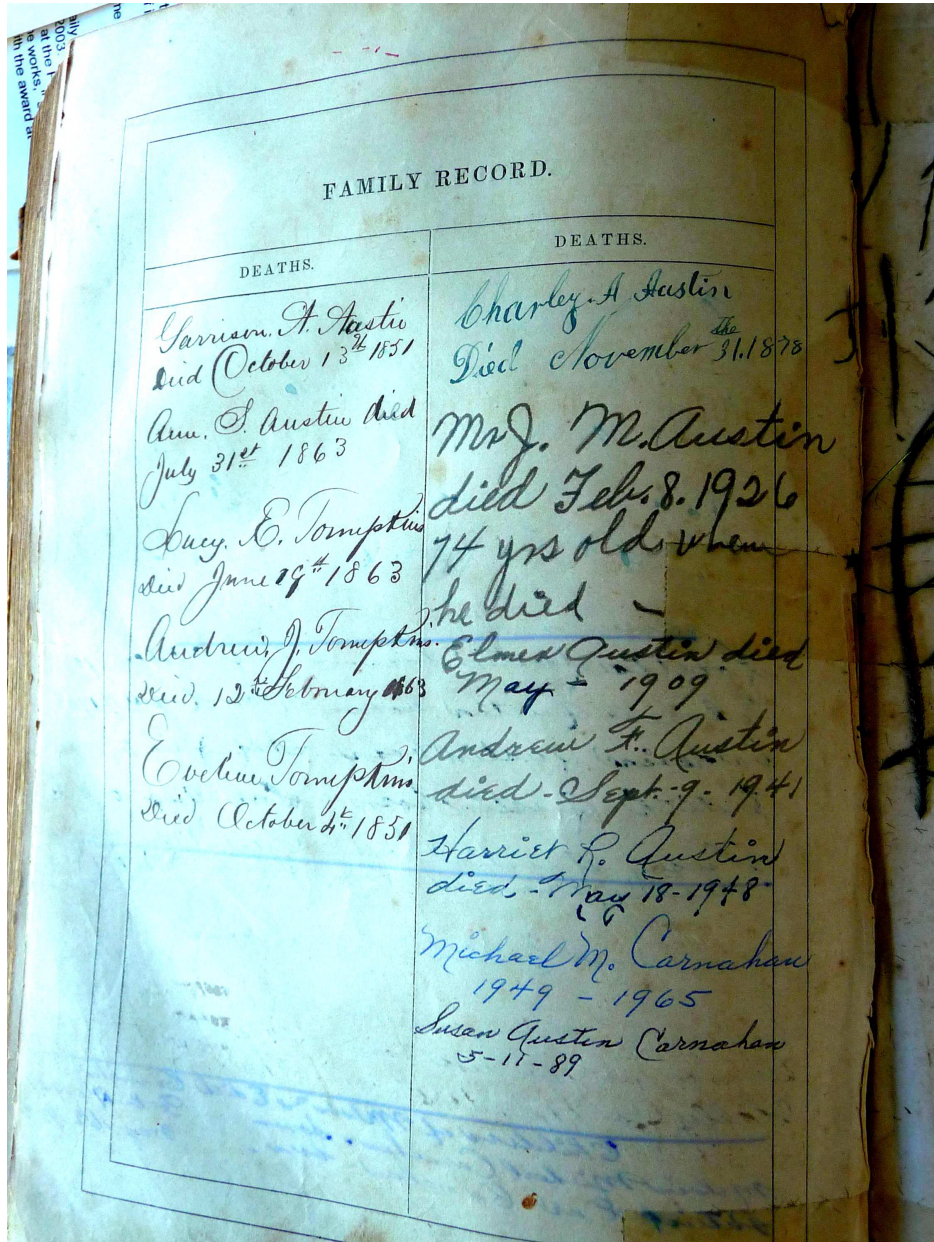 FAMILY RECORD.
DEATHS.
Garrison. A. Austin
Died October 13th 1851
Ann. S. Austin died
July 31st 1863
Lucy. E. Tompkins
Died June 19th 1863
Andrew J. Tompkins.
Died. 12th February 1863
Eveline Tompkins.
Died October 4th 1851
DEATHS.
Charley. A Austin
Died November the 31. 1878
Mr J. M. Austin
died Feb. 8. 1926
74 yrs old when
he died -
Elmer Austin died
May - 1909
Andrew F. Austin
died - Sept - 9 - 1941
Harriet R. Austin
died, - May 18 - 1948
Michael M. Carnahan
1949 - 1965
Susan Austin Carnahan
5-11-89
2003.
at the
e works,
ith the award